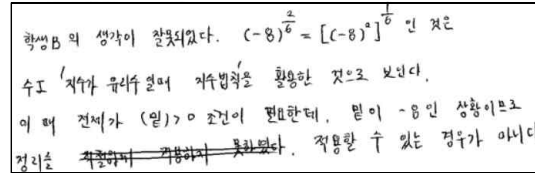 학생B 의 생각이 잘못되었다. (-8)^{2/6} = [(-8)^2]^{1/6} 인 것은
수I '지수가 유리수일때 지수법칙'을 활용한 것으로 보인다.
이 때 전제가 (밑)>0 조건이 필요한데, 밑이 -8인 상황이므로
정리를 적절하게 적용하지 못하였다. 적용할 수 있는 경우가 아니다